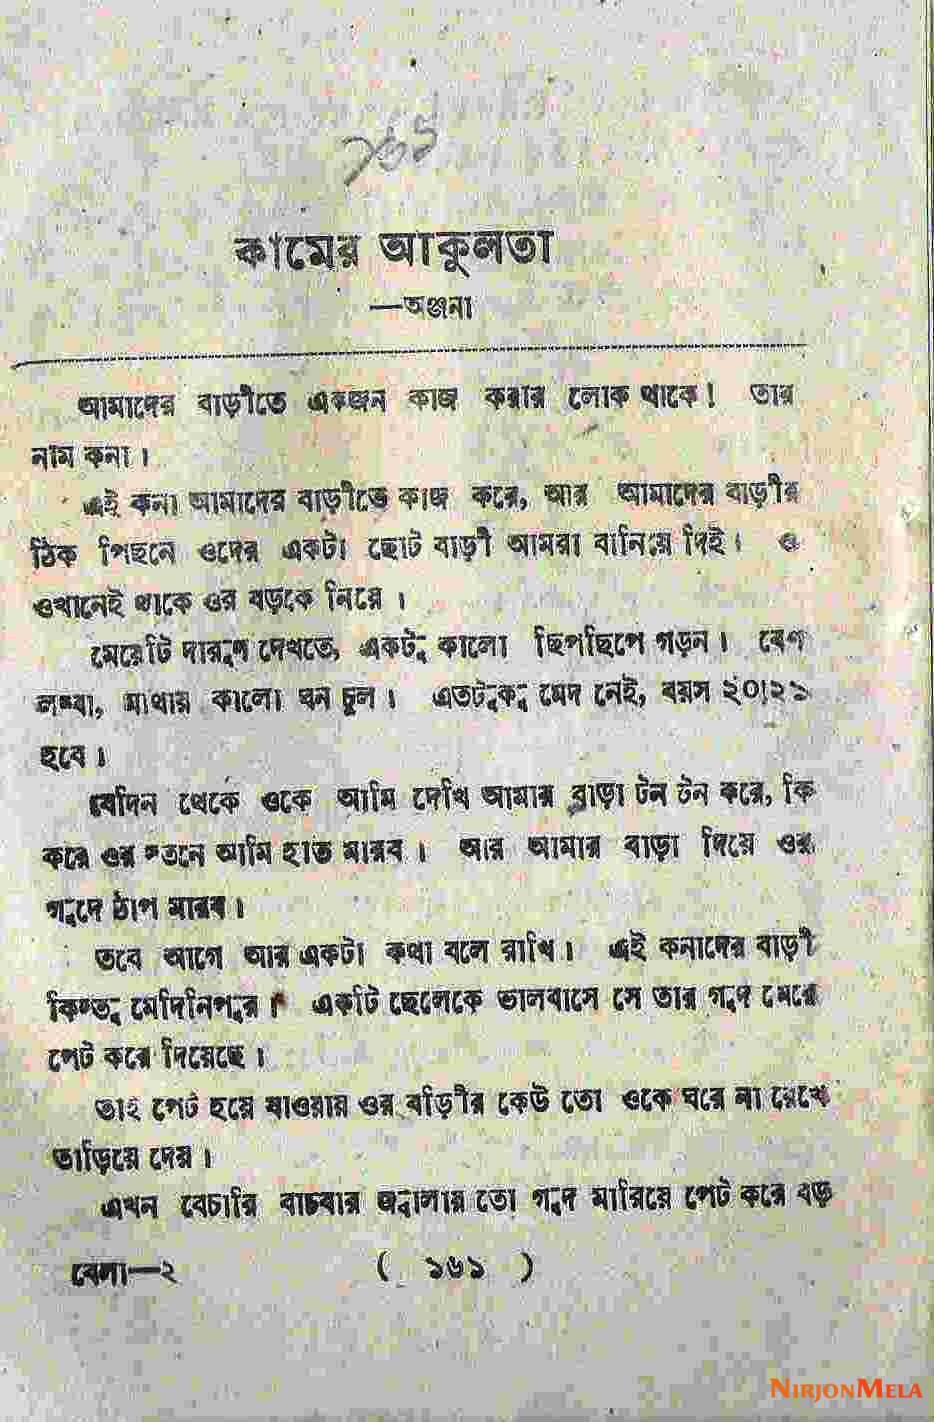 ১৬১
কামের আকুলতা
—অঞ্জনা
আমাদের বাড়ীতে একজন কাজ করার লোক থাকে! তার
নাম কনা।
এই কনা আমাদের বাড়ীতে কাজ করে, আর আমাদের বাড়ীর
ঠিক পিছনে ওদের একটা ছোট বাড়ী আমরা বানিয়ে দিই। ও
ওখানেই থাকে ওর বড়কে নিয়ে।
মেয়েটি দারুণ দেখতে, একটু কালো ছিপছিপে গড়ন। বেশ
লম্বা, মাথায় কালো ঘন চুল। এতটুকু মেদ নেই, বয়স ২০।২১
হবে।
যেদিন থেকে ওকে আমি দেখি আমার বাড়া টন টন করে, কি
করে ওর স্তনে আমি হাত মারব। আর আমার বাড়া দিয়ে ওর
গুদে ঠাপ মারব।
তবে আগে আর একটা কথা বলে রাখি। এই কনাদের বাড়ী
কিন্তু মেদিনিপুর। একটি ছেলেকে ভালবাসে সে তার গুদ মেরে
পেট করে দিয়েছে।
তাই পেট হয়ে যাওয়ায় ওর বাড়ীর কেউ তো ওকে ঘরে না রেখে
তাড়িয়ে দেয়।
এখন বেচারি বাচবার জ্বালায় তো গুদ মারিয়ে পেট করে বড়
বেলা—২
( ১৬১ )
NIRJONMELA